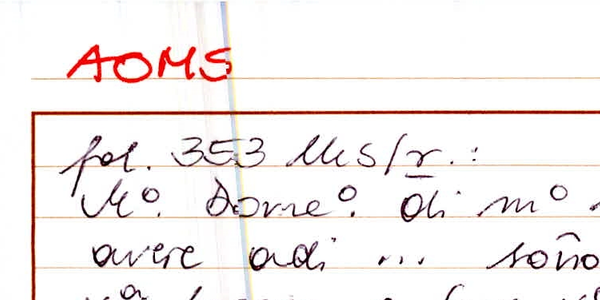 AOMS
fol. 353 MS/r.:
Mº. Domeº. di mº
avere adi ... soño